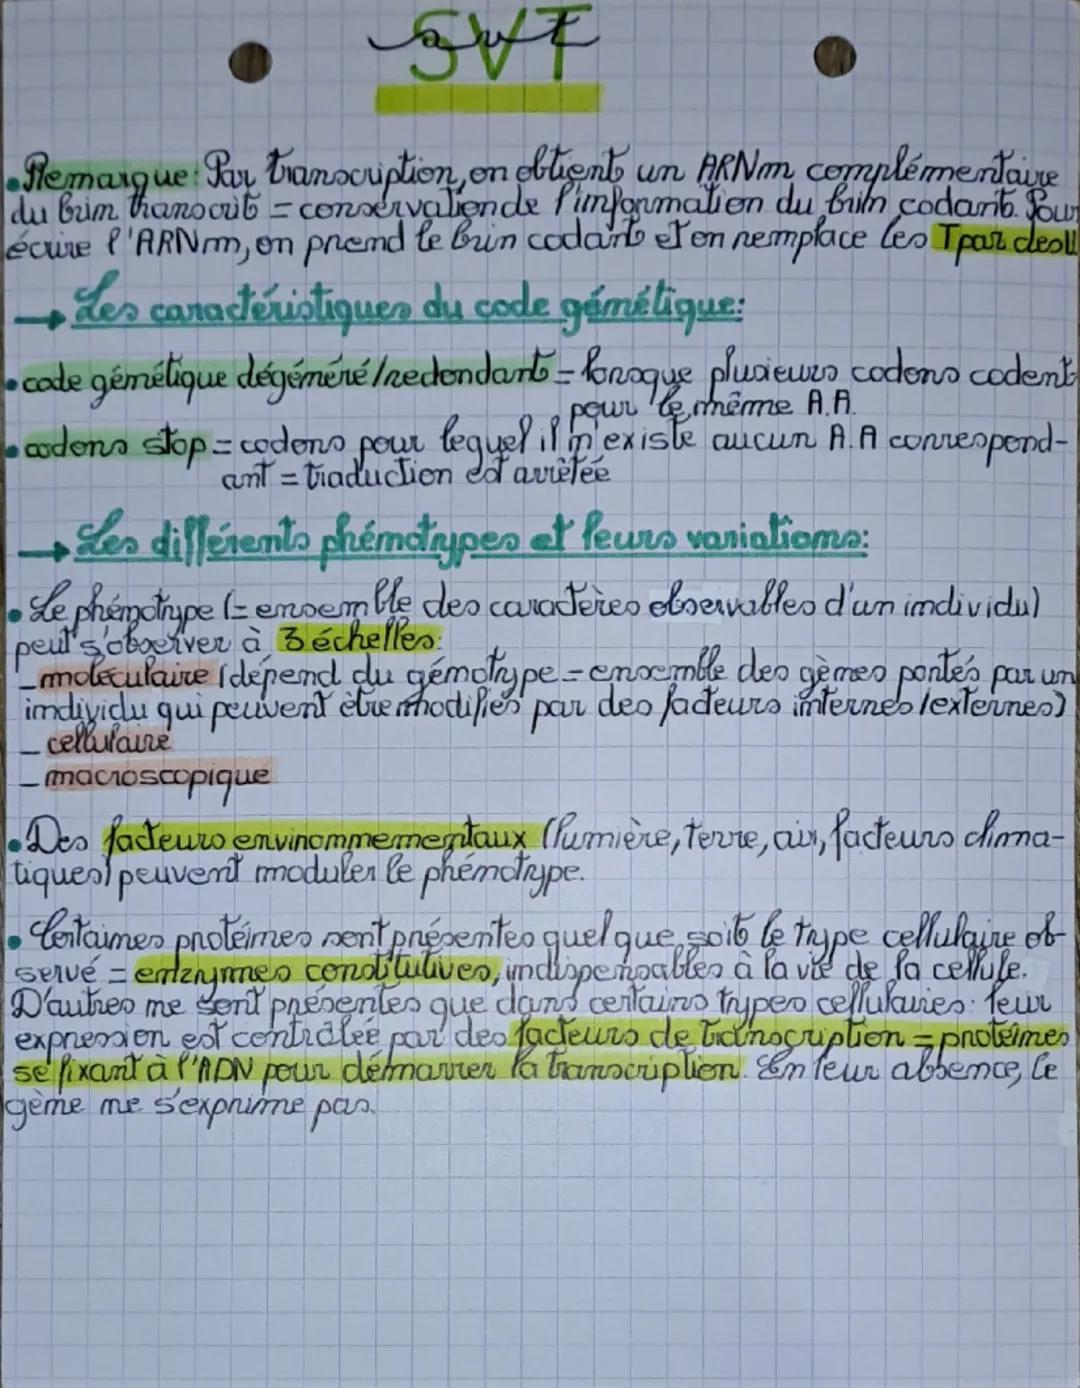 SVT
svt
• Remarque: Par transcription, on obtient un ARNm complémentaire
du brin transcrit = conservation de l'information du brin codant. Pour
écrire l'ARNm, on prend le brin codant et on remplace les T par des U
→ Les caractéristiques du code génétique:
• code génétique dégénéré/redondant = lorsque plusieurs codons codent
pour le même A.A.
• codons stop = codons pour lequel il n'existe aucun A.A correspond-
ant = traduction est arrêtée
→ Les différents phénotypes et leurs variations:
• Le phénotype (= ensemble des caractères observables d'un individu)
peut s'observer à 3 échelles:
- moléculaire (dépend du génotype = ensemble des gènes portés par un
individu qui peuvent être modifiés par des facteurs internes/externes)
- cellulaire
- macroscopique
• Des facteurs environnementaux (lumière, terre, air, facteurs clima-
tiques) peuvent moduler le phénotype.
• Certaines protéines sont présentes quel que soit le type cellulaire ob-
servé = enzymes constitutives, indispensables à la vie de la cellule.
D'autres ne sont présentes que dans certains types cellulaires: leur
expression est contrôlée par des facteurs de transcription = protéines
se fixant à l'ADN pour démarrer la transcription. En leur absence, le
gène ne s'exprime pas.